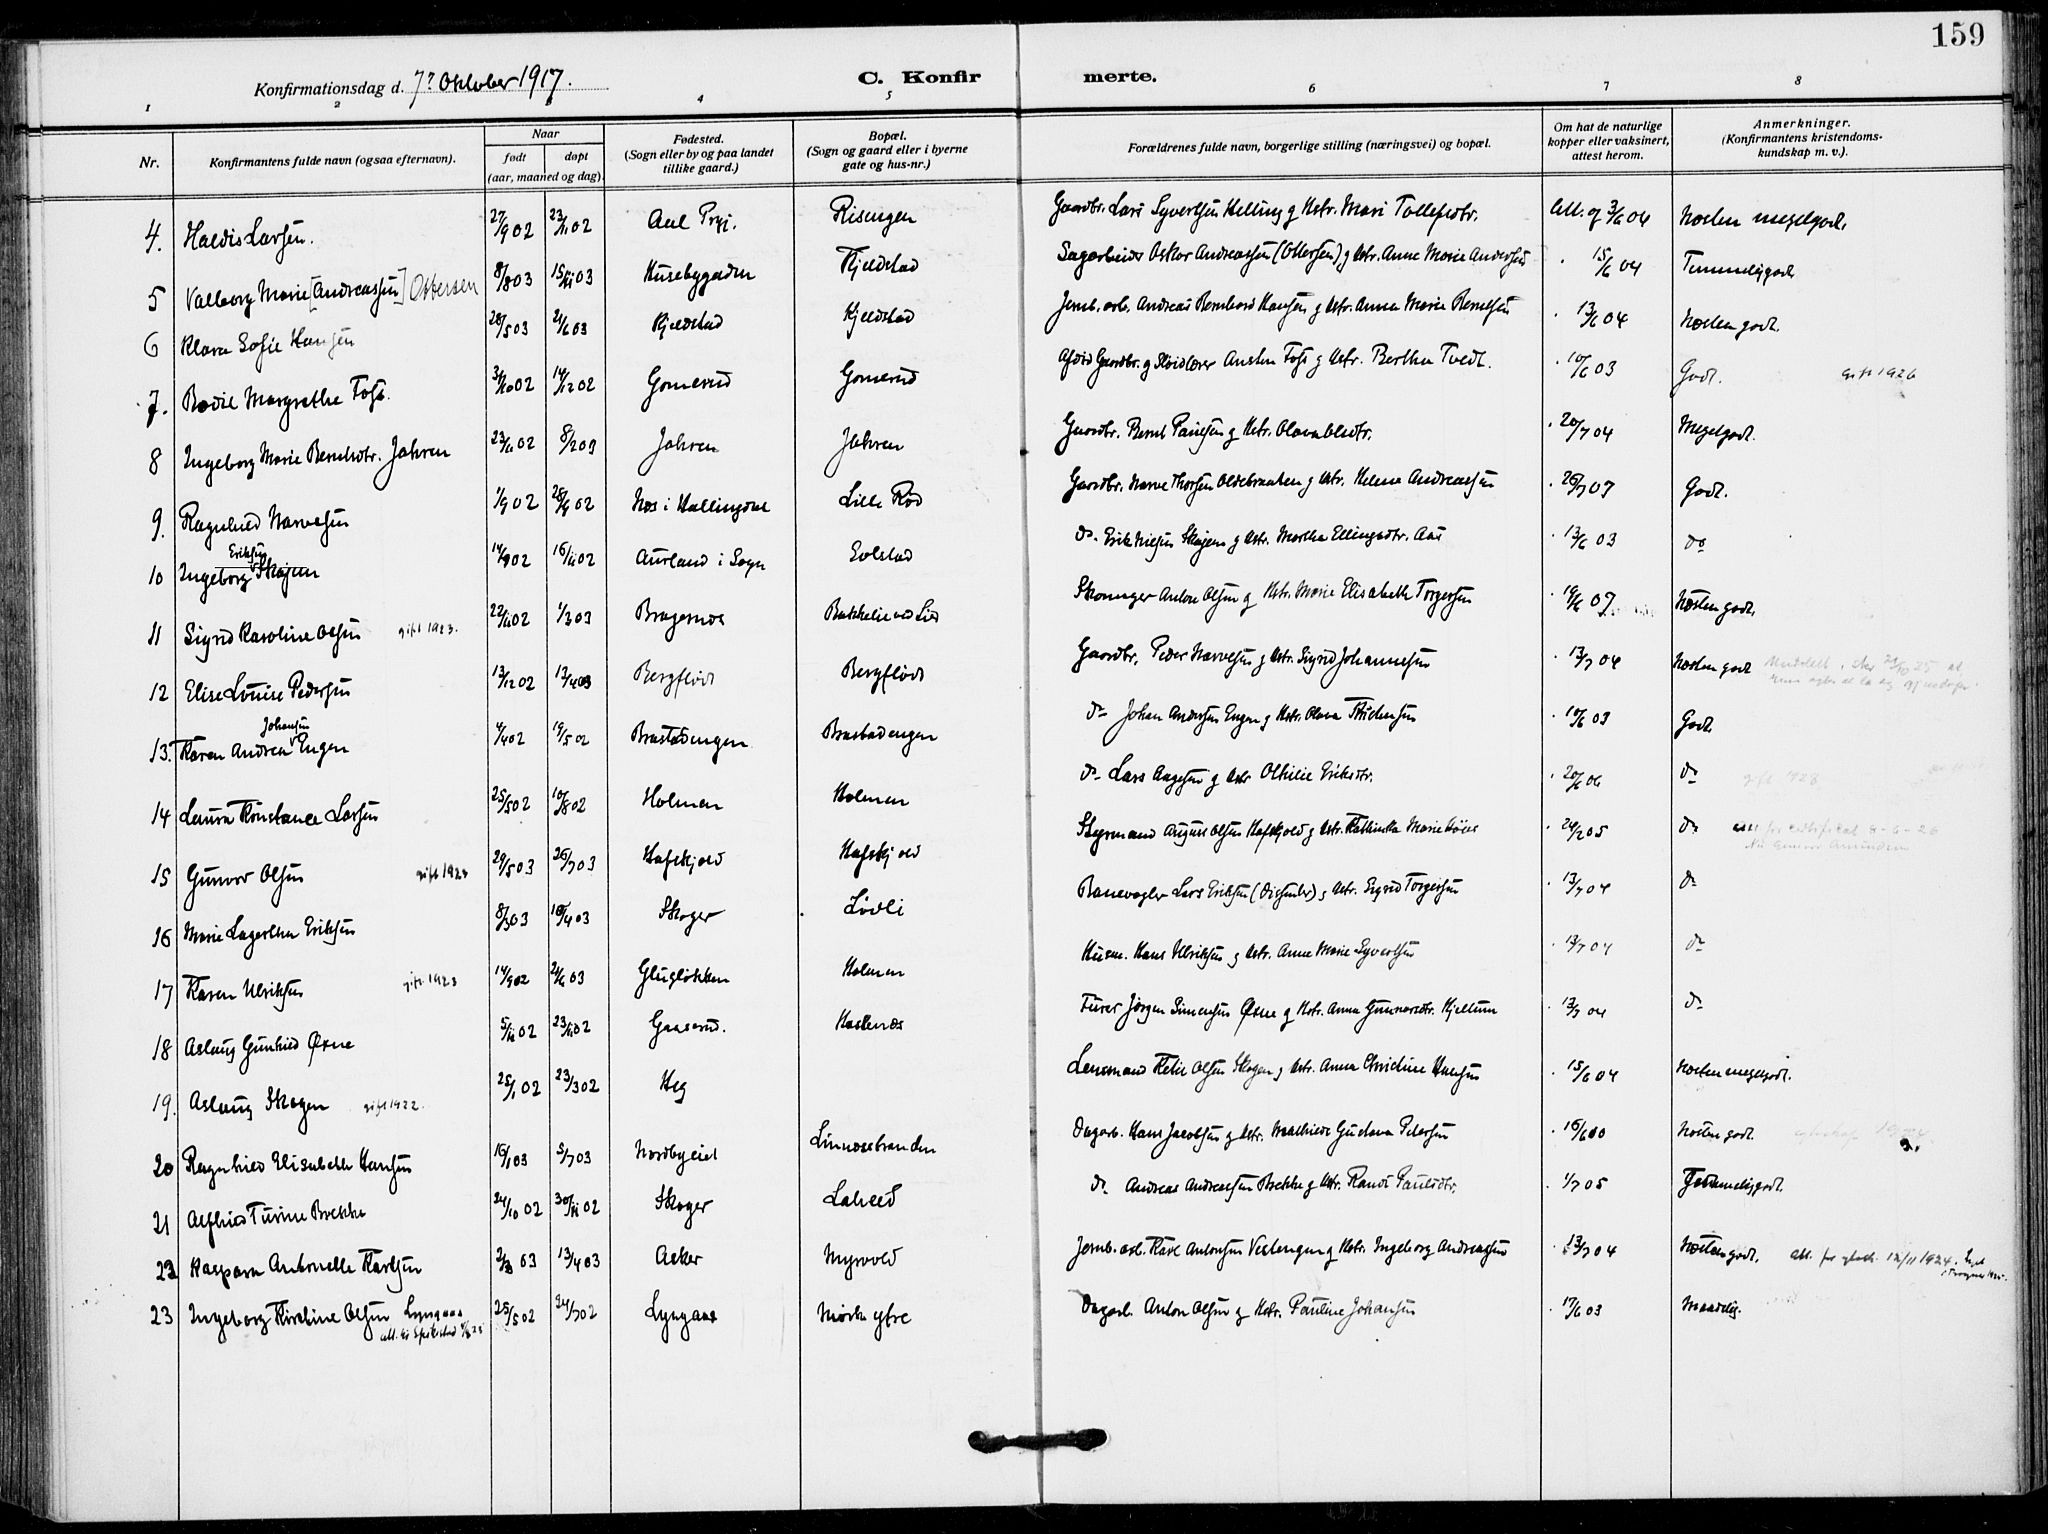 159
Konfirmationsdag d. 7. Oktober 1917. C. Konfirmerte.
1 2 3 4 5 6 7 8
Nr.
Konfirmantens fulde navn (ogsaa efternavn).
Naar
født døpt
(aar, maaned og dag).
Fødested.
(Sogn eller by og paa landet
tillike gaard.)
Bopæl.
(Sogn og gaard eller i byerne
gate og hus-nr.)
Forældrenes fulde navn, borgerlige stilling (næringsvei) og bopæl.
Om hat de naturlige
kopper eller vaksinert,
attest herom.
Anmerkninger.
(Konfirmantens kristendoms-
kundskap m. v.).
4. Haldis Larsen. 27/9 02 Risingen Gaardbr. Lars Syvertsen Helling g Hstr. Mari Tollefsdtr. Næsten megetgodt.
5 Valborg Marie [Andreassen] Ottersen 8/8 03 Husebygaden Kjeldstad Sagarbeider Oskar Andreassen (Ottersen) g Hstr. Anne Marie Andersen 15/6 04 Temmeliggodt
6 Klara Sofie Hansen 28/5 03 21/6 03 Kjeldstad Kjeldstad Jernb. arb. Andreas Bernhard Hansen g Hstr. Anna Marie Berntsen 13/6 04 Næsten godt.
7. Bodil Margrethe Foss. 14/12 02 Gomerud Gomerud Gaardbr. g Austen Foss g Hstr. Bertha Tvedt. 10/6 03 Godt. gift 1926
8 Ingeborg Marie Berntsdtr. Jahren 8/2 03 Jahren Jahren Gaardbr. Bernt Paulsen g Hstr. Olava Olsdtr. 20/7 04 Megetgodt.
9. Ragnhild Narvesen 1/9 02 28/9 02 Næs i Hallingdal Lille Rød Gaardbr. Narve Thorsen Oldebraaten g Hstr. Helene Andreassen 26/7 07 Godt.
Eriksen
10 Ingeborg Skajem 16/11 02 Aurland i Sogn Evlstad do. Erik Nielsen Skajem g Hstr. Martha Ellingsdtr. Aas 13/6 03 do
11 Sigrid Karoline Olsen gift 1923. 22/11 02 1/3 03 Bragernæs Bakkelie ved Lier Anton Olsen g Hstr. Marie Elisabeth Torgersen 19/6 07 Næsten godt.
12 Elise Louise Pedersen 13/12 02 13/4 03 Bergflødt Bergflødt Gaardbr. Peder Narvesen g Hstr. Sigrid Johannesen 13/7 04 Næsten godt
Johansen
13. Karen Andrea Engen 4/4 02 19/5 02 Brastadengen Brastadengen do Johan Andersen Engen g Hstr. Olava 10/6 03 Godt.
14 Laura Konstance Larsen 25/5 02 10/8 02 Holmen Holmen do Lars Aagesen g Hstr. Othilie Eriksdtr. 20/6 06 do gift 1928
15 Gunvor Olsen gift 1923 29/5 03 26/7 03 Hafskjold Hafskjold Styrmand August Olsen Hafskjold g Hstr. Kathinka Marie 24/2 05 do 8-6-26
Nu Gunvor Amundsen
16 Marie Lagertha Eriksen 8/3 03 Skoger Lødli Banevogter Lars Eriksen (Disenter) g Hstr. Sigrid Torgersen 13/7 04 do
17 Karen Ulriksen gift 1923 14/9 02 Glugløkken Holmen Husm. Hans Ulriksen g Hstr. Anne Marie Syvertsen 13/7 04 do
18 Aslaug Gunhild Øxne 23/11 02 Gaaserud. Haslenæs Furer Jørgen Simensen Øxne g Hstr. Anna Gunnarsdtr. Kjellum 13/7 04 do
19. Aslaug Skogen gift 1922. 25/1 02 23/3 02 Heg Lensmand Ketil Olsen Skogen g Hstr. Anna Christine Hansen 15/6 04 Næsten megetgodt.
20 Ragnhild Elisabeth Hansen 16/1 03 5/7 03 Nordbyeiet Linnæsbranden Dagarb. Hans Jacobsen g Hstr. Mathilde Gustava Petersen Næsten godt.
21 Alfhild Turine Brekke 24/10 02 Skoger Lahell do Andreas Andreassen Brekke g Hstr. Randi Paulsdtr. 1/7 05 Temmeliggodt.
22 Kaspara Antonette Karlsen 2/3 03 13/4 03 Asker Myrvold Jernb. arb. Karl Antonsen Vestengen g Hstr. Ingeborg Andreassen 13/7 04 Næsten godt. att. for 12/11 1924.
23 Ingeborg Kristine Olsen Lyngaas 25/5 02 24/7 02 Lyngaas Mørk yfre Dagarb. Anton Olsen g Hstr. Pauline Johansen 17/6 03 Maadelig.